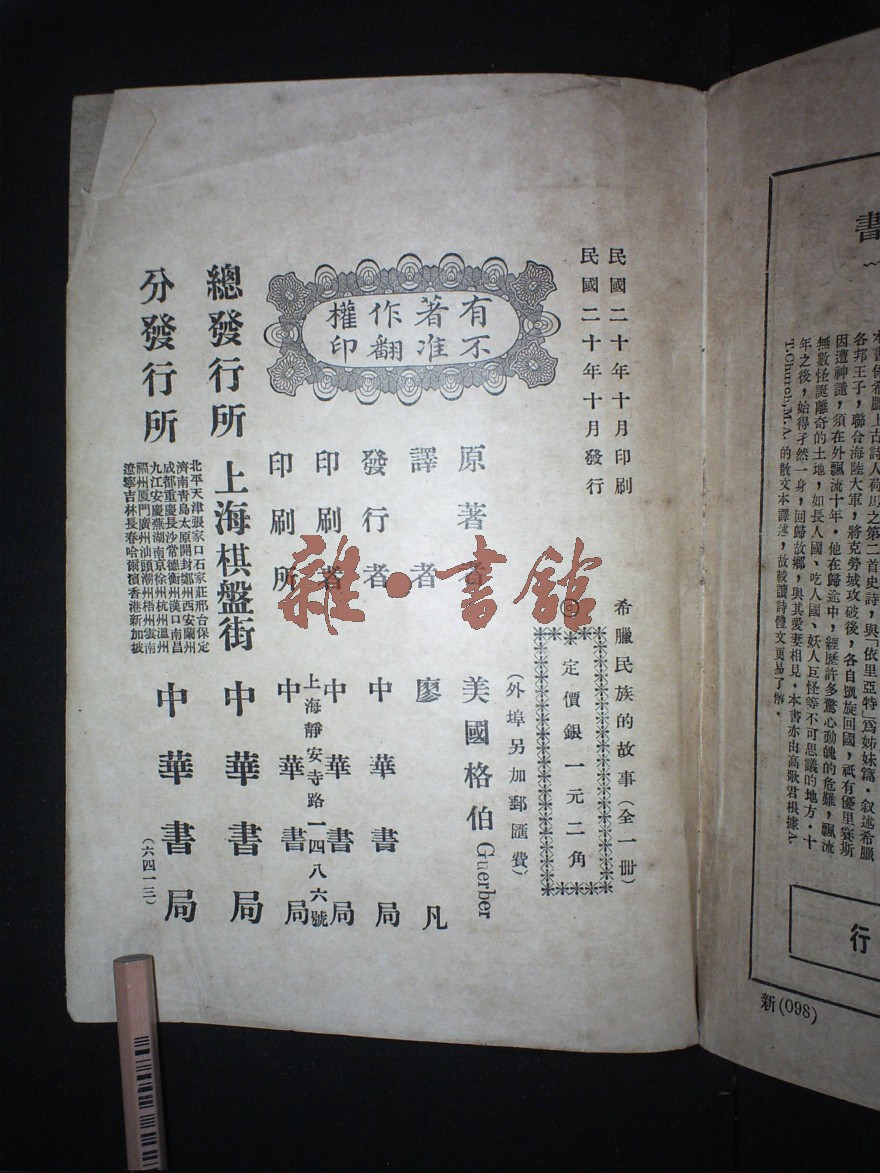 民國二十年十月印刷
民國二十年十月發行
希臘民族的故事（全一冊）
◎定價銀一元二角
（外埠另加郵匯費）
有不
著准
作翻
權印
原著者 美國格伯 Guerber
譯者 廖凡
發行者 中華書局
印刷者 中華書局
上海靜安寺路一四八六號
印刷所 中華書局
總發行所 上海棋盤街 中華書局
分發行所
北平天津張家口石家莊邢台保定
濟南青島太原開封鄭州西安蘭州
成都重慶長沙常德衡州漢口南昌
九江安慶蕪湖南京徐州杭州溫州
福州厦門廣州汕頭潮州梧州雲南
遼寧吉林長春哈爾濱香港新加坡
中華書局
（六四一三）
雜·書館
書
本書係希臘上古詩人荷馬之第二首史詩，與「依里亞特」爲姊妹篇．叙述希臘
各邦王子，聯合海陸大軍，將克勞城攻破後，各自凱旋回國，祇有優里賽斯
因遭神譴，須在外飄流十年．他在歸途中，經歷許多驚心動魄的危難，飄流
無數怪誕離奇的土地，如長人國、吃人國、妖人巨怪等不可思議的地方．十
年之後，始得孑然一身，回歸故鄉，與其愛妻相見．本書亦由高歌君根據A.
T.Church,M.A.的散文本譯述，故較讀詩體文更易了解．
行
新(098)